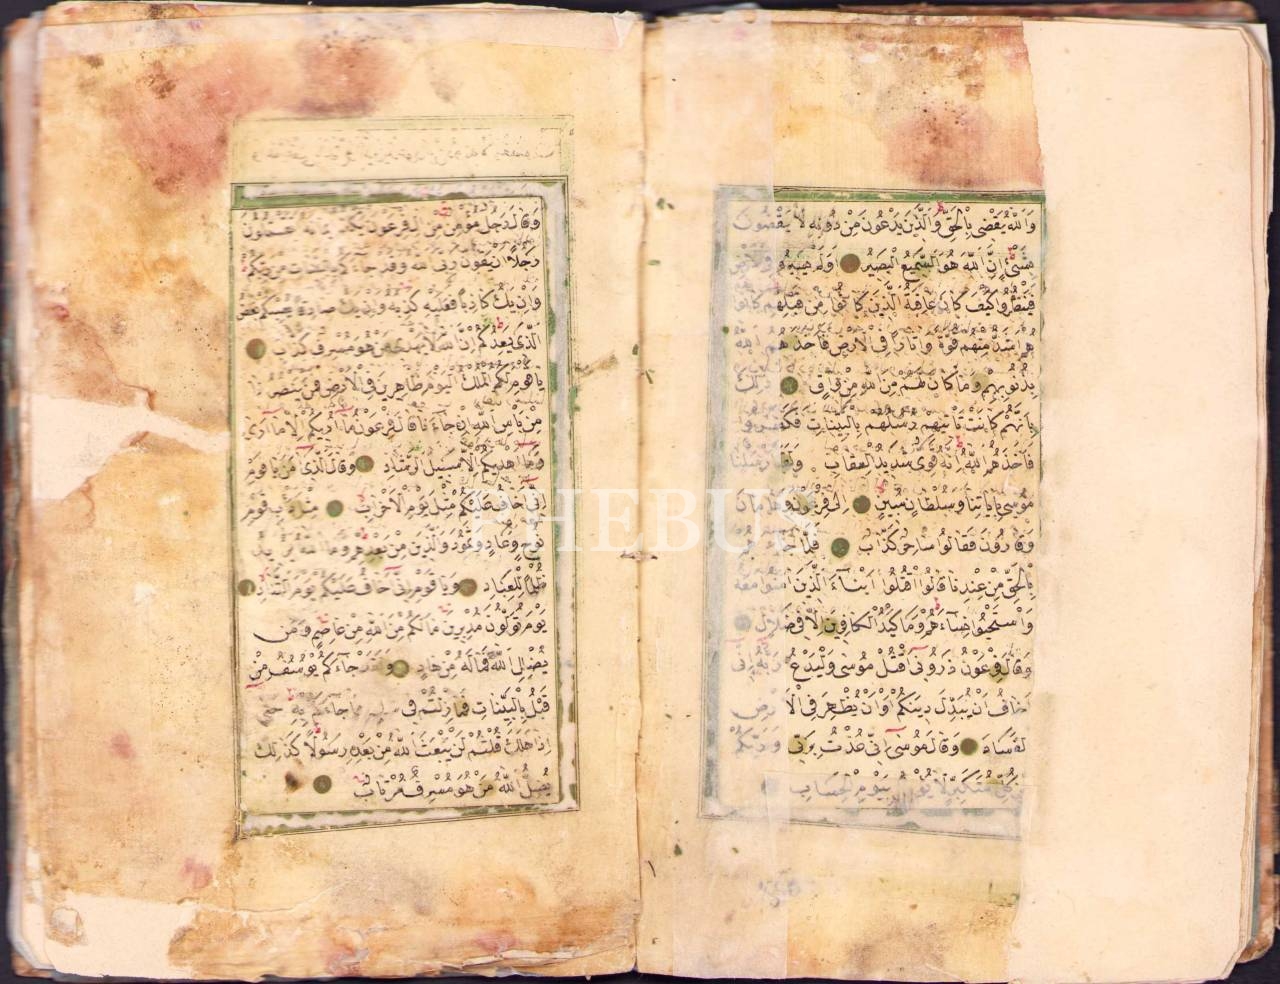 وَاللّٰهُ يَقْضِى بِالْحَقِّ وَالَّذِينَ يَدْعُونَ مِنْ دُونِهِ لَا يَقْضُونَ
بِشَىْءٍ اِنَّ اللّٰهَ هُوَ السَّمِيعُ الْبَصِيرُ اَوَلَمْ يَسِيرُوا فِى الْاَرْضِ
فَيَنْظُرُوا كَيْفَ كَانَ عَاقِبَةُ الَّذِينَ كَانُوا مِنْ قَبْلِهِمْ كَانُوا
هُمْ اَشَدَّ مِنْهُمْ قُوَّةً وَاٰثَارًا فِى الْاَرْضِ فَاَخَذَهُمُ اللّٰهُ
بِذُنُوبِهِمْ وَمَا كَانَ لَهُمْ مِنَ اللّٰهِ مِنْ وَاقٍ ذٰلِكَ
بِاَنَّهُمْ كَانَتْ تَاْتِيهِمْ رُسُلُهُمْ بِالْبَيِّنَاتِ فَكَفَرُوا
فَاَخَذَهُمُ اللّٰهُ اِنَّهُ قَوِىٌّ شَدِيدُ الْعِقَابِ وَلَقَدْ اَرْسَلْنَا
مُوسٰى بِاٰيَاتِنَا وَسُلْطَانٍ مُبِينٍ اِلٰى فِرْعَوْنَ وَهَامَانَ
وَقَارُونَ فَقَالُوا سَاحِرٌ كَذَّابٌ فَلَمَّا جَاءَهُمْ
بِالْحَقِّ مِنْ عِنْدِنَا قَالُوا اقْتُلُوا اَبْنَاءَ الَّذِينَ اٰمَنُوا مَعَهُ
وَاسْتَحْيُوا نِسَاءَهُمْ وَمَا كَيْدُ الْكَافِرِينَ اِلَّا فِى ضَلَالٍ
وَقَالَ فِرْعَوْنُ ذَرُونِى اَقْتُلْ مُوسٰى وَلْيَدْعُ رَبَّهُ اِنِّى
اَخَافُ اَنْ يُبَدِّلَ دِينَكُمْ اَوْ اَنْ يُظْهِرَ فِى الْاَرْضِ
الْفَسَادَ وَقَالَ مُوسٰى اِنِّى عُذْتُ بِرَبِّى وَرَبِّكُمْ
مِنْ كُلِّ مُتَكَبِّرٍ لَا يُؤْمِنُ بِيَوْمِ الْحِسَابِ
وَقَالَ رَجُلٌ مُؤْمِنٌ مِنْ اٰلِ فِرْعَوْنَ يَكْتُمُ اِيمَانَهُ اَتَقْتُلُونَ
رَجُلًا اَنْ يَقُولَ رَبِّىَ اللّٰهُ وَقَدْ جَاءَكُمْ بِالْبَيِّنَاتِ مِنْ رَبِّكُمْ
وَاِنْ يَكُ كَاذِبًا فَعَلَيْهِ كَذِبُهُ وَاِنْ يَكُ صَادِقًا يُصِبْكُمْ بَعْضُ
الَّذِى يَعِدُكُمْ اِنَّ اللّٰهَ لَا يَهْدِى مَنْ هُوَ مُسْرِفٌ كَذَّابٌ
يَا قَوْمِ لَكُمُ الْمُلْكُ الْيَوْمَ ظَاهِرِينَ فِى الْاَرْضِ فَمَنْ يَنْصُرُنَا
مِنْ بَاْسِ اللّٰهِ اِنْ جَاءَنَا قَالَ فِرْعَوْنُ مَا اُرِيكُمْ اِلَّا مَا اَرٰى
وَمَا اَهْدِيكُمْ اِلَّا سَبِيلَ الرَّشَادِ وَقَالَ الَّذِى اٰمَنَ يَا قَوْمِ
اِنِّى اَخَافُ عَلَيْكُمْ مِثْلَ يَوْمِ الْاَحْزَابِ مِثْلَ دَاْبِ قَوْمِ
نُوحٍ وَعَادٍ وَثَمُودَ وَالَّذِينَ مِنْ بَعْدِهِمْ وَمَا اللّٰهُ يُرِيدُ
ظُلْمًا لِلْعِبَادِ وَيَا قَوْمِ اِنِّى اَخَافُ عَلَيْكُمْ يَوْمَ التَّنَادِ
يَوْمَ تُوَلُّونَ مُدْبِرِينَ مَا لَكُمْ مِنَ اللّٰهِ مِنْ عَاصِمٍ وَمَنْ
يُضْلِلِ اللّٰهُ فَمَا لَهُ مِنْ هَادٍ وَلَقَدْ جَاءَكُمْ يُوسُفُ مِنْ
قَبْلُ بِالْبَيِّنَاتِ فَمَا زِلْتُمْ فِى شَكٍّ مِمَّا جَاءَكُمْ بِهِ حَتّٰى
اِذَا هَلَكَ قُلْتُمْ لَنْ يَبْعَثَ اللّٰهُ مِنْ بَعْدِهِ رَسُولًا كَذٰلِكَ
يُضِلُّ اللّٰهُ مَنْ هُوَ مُسْرِفٌ مُرْتَابٌ
PHEBUS